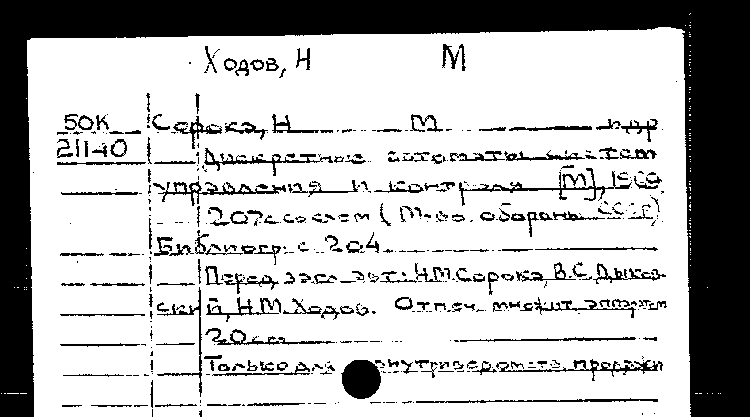 Ходов, Н М
50К Сорока, Н М и др
21140 Дискретные автоматы систем
управления и контроля [М], 1969
207с со схем (М-во обороны СССР)
Библиогр: с 204
Перед загл авт: Н.М.Сорока, В.С.Дыков-
ский, Н.М.Ходов. Отпеч множит аппаратом
20см
Только для внутриведомств продажи